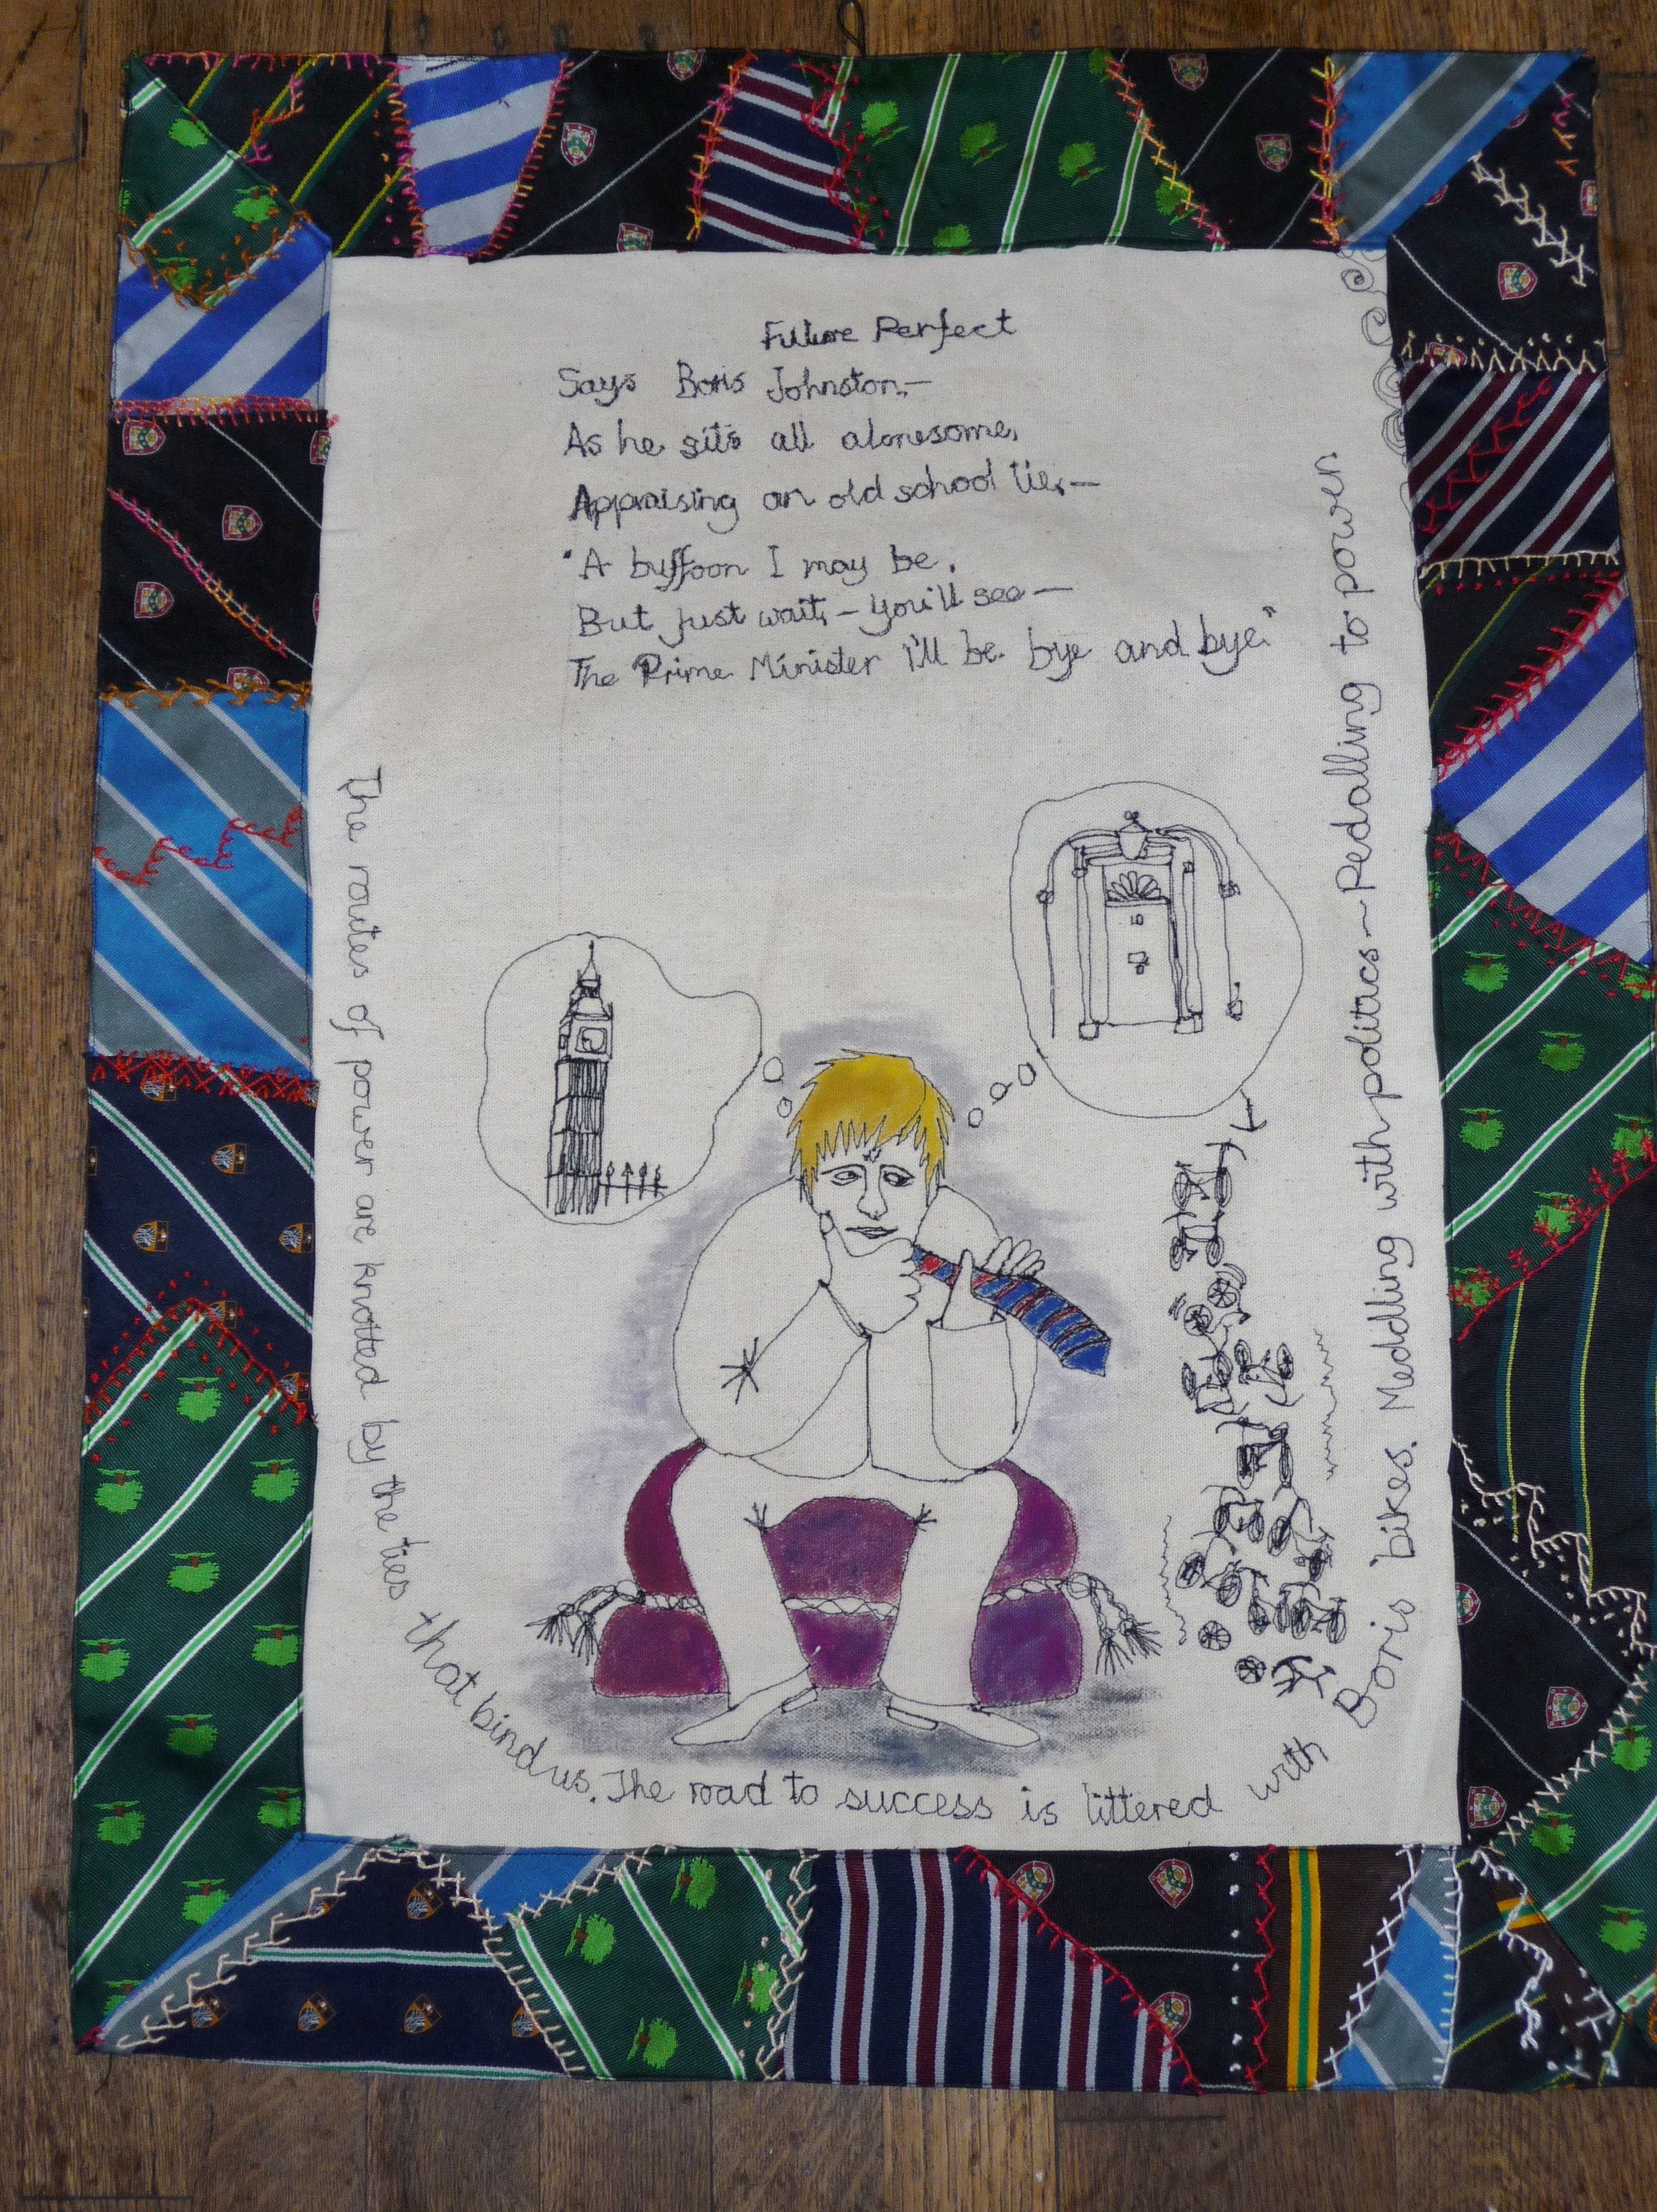 Future Perfect
Says Boris Johnston,—
As he sits all alonesome,
Appraising an old school tie,—
"A buffoon I may be,
But just wait, – you'll see —
The Prime Minister I'll be bye and bye."
The routes of power are knotted by the ties that bind us. The road to success is littered with Boris bikes. Meddling with politics ~ Pedalling to power